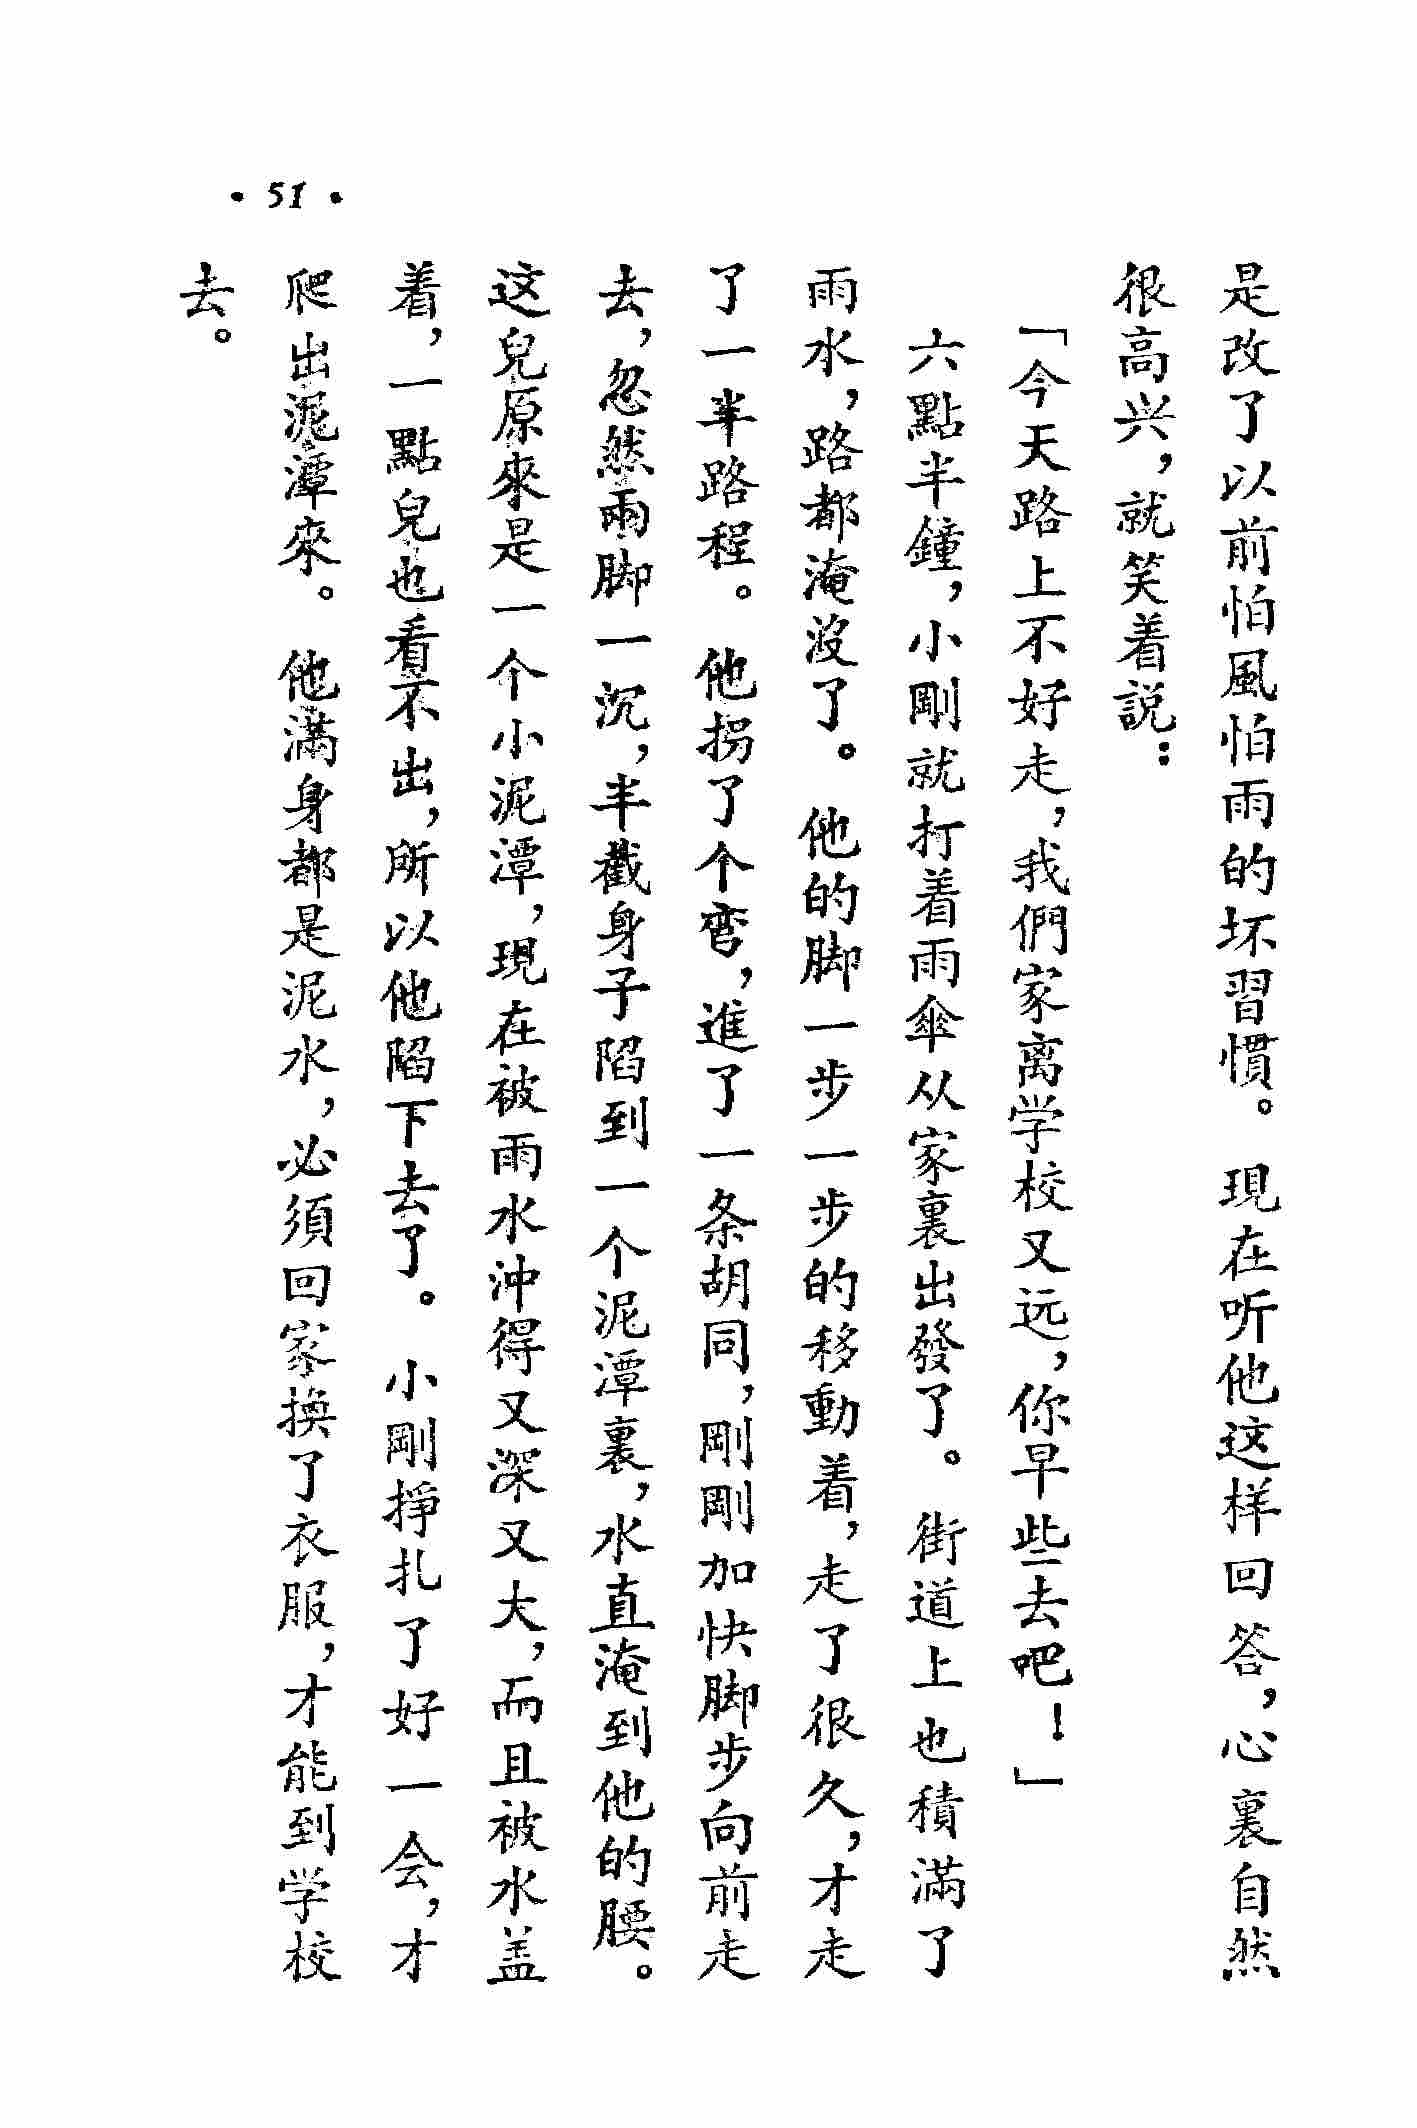 是改了以前怕風怕雨的坏習慣。現在听他这样回答，心裏自然
很高兴，就笑着説：
「今天路上不好走，我們家离学校又远，你早些去吧！」
六點半鐘，小剛就打着雨傘从家裏出發了。街道上也積滿了
雨水，路都淹没了。他的脚一步一步的移動着，走了很久，才走
了一半路程。他拐了个弯，進了一条胡同，剛剛加快脚步向前走
去，忽然兩脚一沉，半截身子陷到一个泥潭裏，水直淹到他的腰。
这兒原來是一个小泥潭，現在被雨水沖得又深又大，而且被水盖
着，一點兒也看不出，所以他陷下去了。小剛掙扎了好一会，才
爬出泥潭來。他滿身都是泥水，必須回家換了衣服，才能到学校
去。
• 51 •